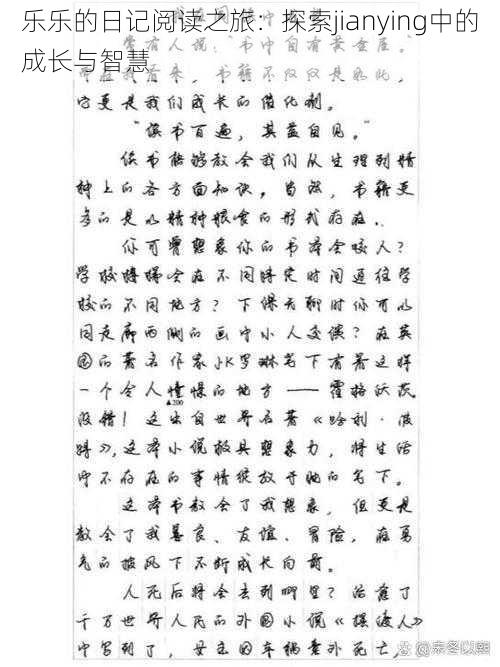 乐乐的日记阅读之旅：探索jianying中的
成长与智慧
曾有人说：“书中自有黄金屋。”
它更是我们成长的催化剂。
“读书百遍，其益自见。”
读书能够教会我们从生理到精
神上的各方面知识。当然，书籍更
多的是以精神粮食的形式存在.。
你可曾想象你的书本会咬人？
学校楼梯会在不同特定时间通往学
校的不同地方？下课无聊时你可以
同走廊两侧的画中小人交谈？在英
国的著名作家JK罗琳笔下有着这样
一个令人憧憬的地方——霍格沃茨
▲200
没错！这出自世界名著《哈利·波
特》,这本小说极具想象力，将生活
中不存在的事情绽放于她的笔下。
这本书教会了我想象，但更是
教会了我善良、友谊、冒险，在勇
气的披风下不断成长向前。
人死后将会去到哪里？治愈了
千万世界人民的外国小说《摆渡人》
中写到了，女主因车祸意外死亡，
@亲冬以熙